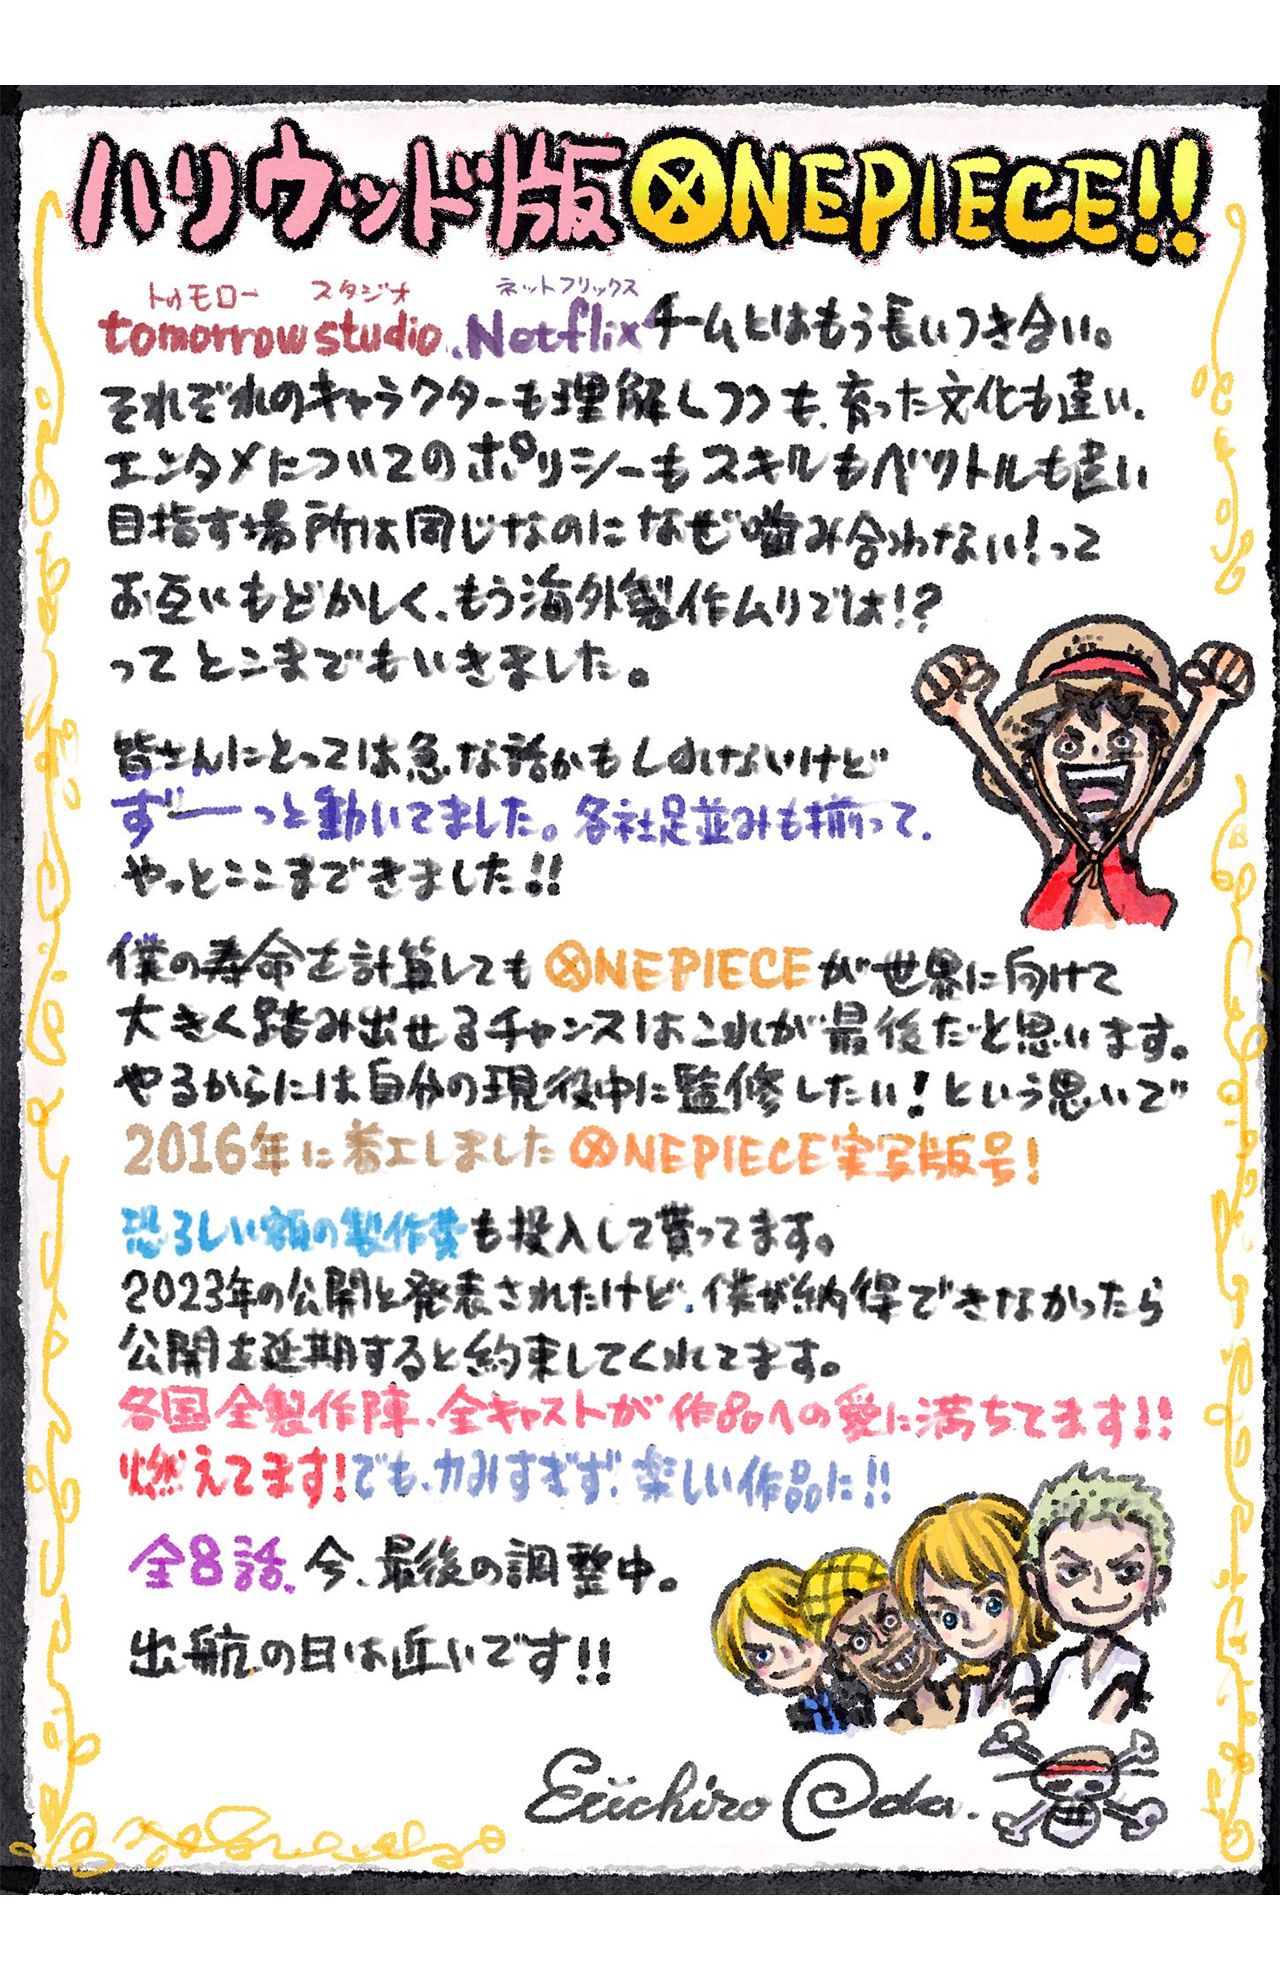 ハリウッド版ONEPIECE!!
トゥモロー スタジオ ネットフリックス
tomorrow studio、Netflixチームとはもう長いつき合い。
それぞれのキャラクターも理解しつつも、育った文化も違い、
エンタメについてのポリシーもスキルもベクトルも違い
目指す場所は同じなのになぜ噛み合わない!って
お互いもどかしく、もう海外製作ムリでは!?
ってとこまでもいきました。
皆さんにとっては急な話かもしれないけど
ずーーっと動いてました。各社足並みも揃って、
やっとここまできました!!
僕の寿命を計算してもONEPIECEが世界に向けて
大きく踏み出せるチャンスはこれが最後だと思います。
やるからには自分の現役中に監修したい!という思いで
2016年に着工しましたONEPIECE実写版号!
恐ろしい額の製作費も投入して貰ってます。
2023年の公開と発表されたけど、僕が納得できなかったら
公開を延期すると約束してくれてます。
各国全製作陣、全キャストが作品への愛に満ちてます!!
燃えてます!でも、力みすぎず!楽しい作品に!!
全8話、今、最後の調整中。
出航の日は近いです!!
Eiichiro Oda.